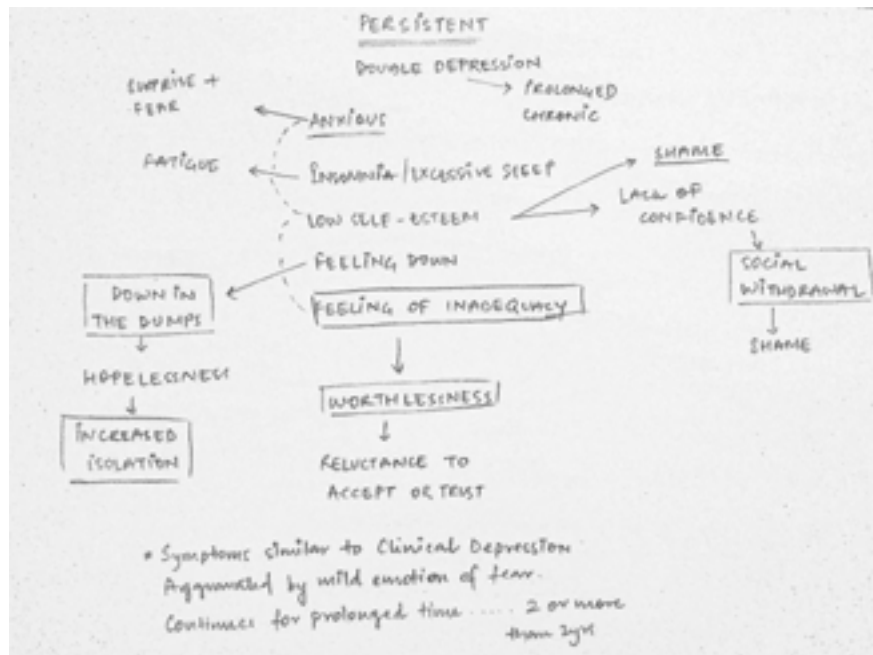 PERSISTENT
DOUBLE DEPRESSION
PROLONGED
CHRONIC
SURPRISE +
FEAR
ANXIOUS
FATIGUE
INSOMNIA / EXCESSIVE SLEEP
SHAME
LOW SELF-ESTEEM
LACK OF
CONFIDENCE
FEELING DOWN
SOCIAL
WITHDRAWAL
DOWN IN
THE DUMPS
FEELING OF INADEQUACY
SHAME
HOPELESSNESS
WORTHLESSNESS
INCREASED
ISOLATION
RELUCTANCE TO
ACCEPT OR TRUST
* Symptoms similar to Clinical Depression
Aggravated by mild emotion of fear.
Continues for prolonged time ..... 2 or more
than 2yrs